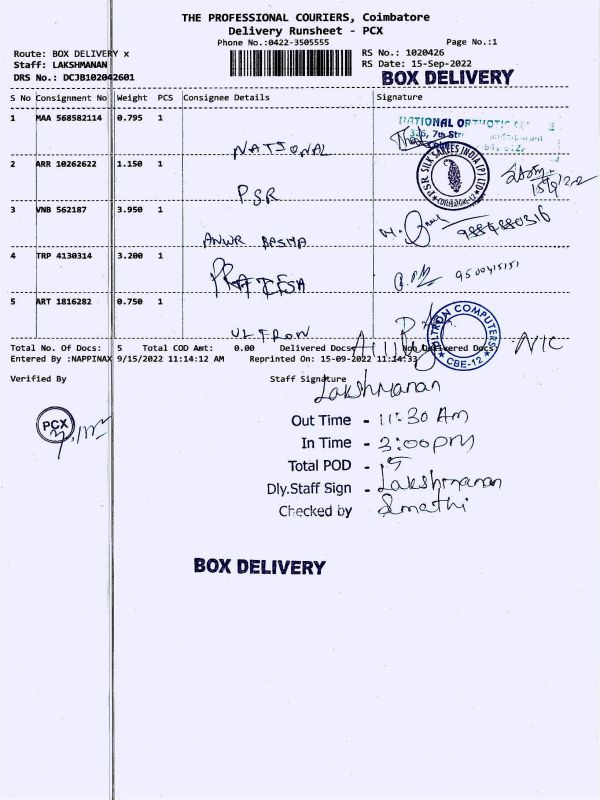 THE PROFESSIONAL COURIERS, Coimbatore
Delivery Runsheet - PCX
Phone No.:0422-3505555 Page No.:1
Route: BOX DELIVERY x RS No.: 1020426
Staff: LAKSHMANAN RS Date: 15-Sep-2022
DRS No.: DCJB102042601 BOX DELIVERY
S No Consignment No Weight PCS Consignee Details Signature
1 MAA 568582114 0.795 1
NATIONAL ORTHOTIC
326, 7th Str
NATIONAL
2 ARR 10262622 1.150 1
PSR SILK SAREES INDIA (P) LTD
COIMBATORE-12
15/9/22
PSR
3 VNB 562187 3.950 1
9884880316
ANWR BASMA
4 TRP 4130314 3.200 1
9500415151
PRATEESA
5 ART 1816282 0.750 1
ULTRON COMPUTERS
CBE-12
ULTRON
Total No. Of Docs: 5 Total COD Amt: 0.00 Delivered Docs Non Delivered Docs NIC
Entered By :NAPPINAX 9/15/2022 11:14:12 AM Reprinted On: 15-09-2022 11:14:33
Verified By Staff Signature
Lakshmanan
PCX
Out Time - 11:30 Am
In Time - 3:00pm
Total POD - 5
Dly.Staff Sign - Lakshmanan
Checked by Sumathi
BOX DELIVERY